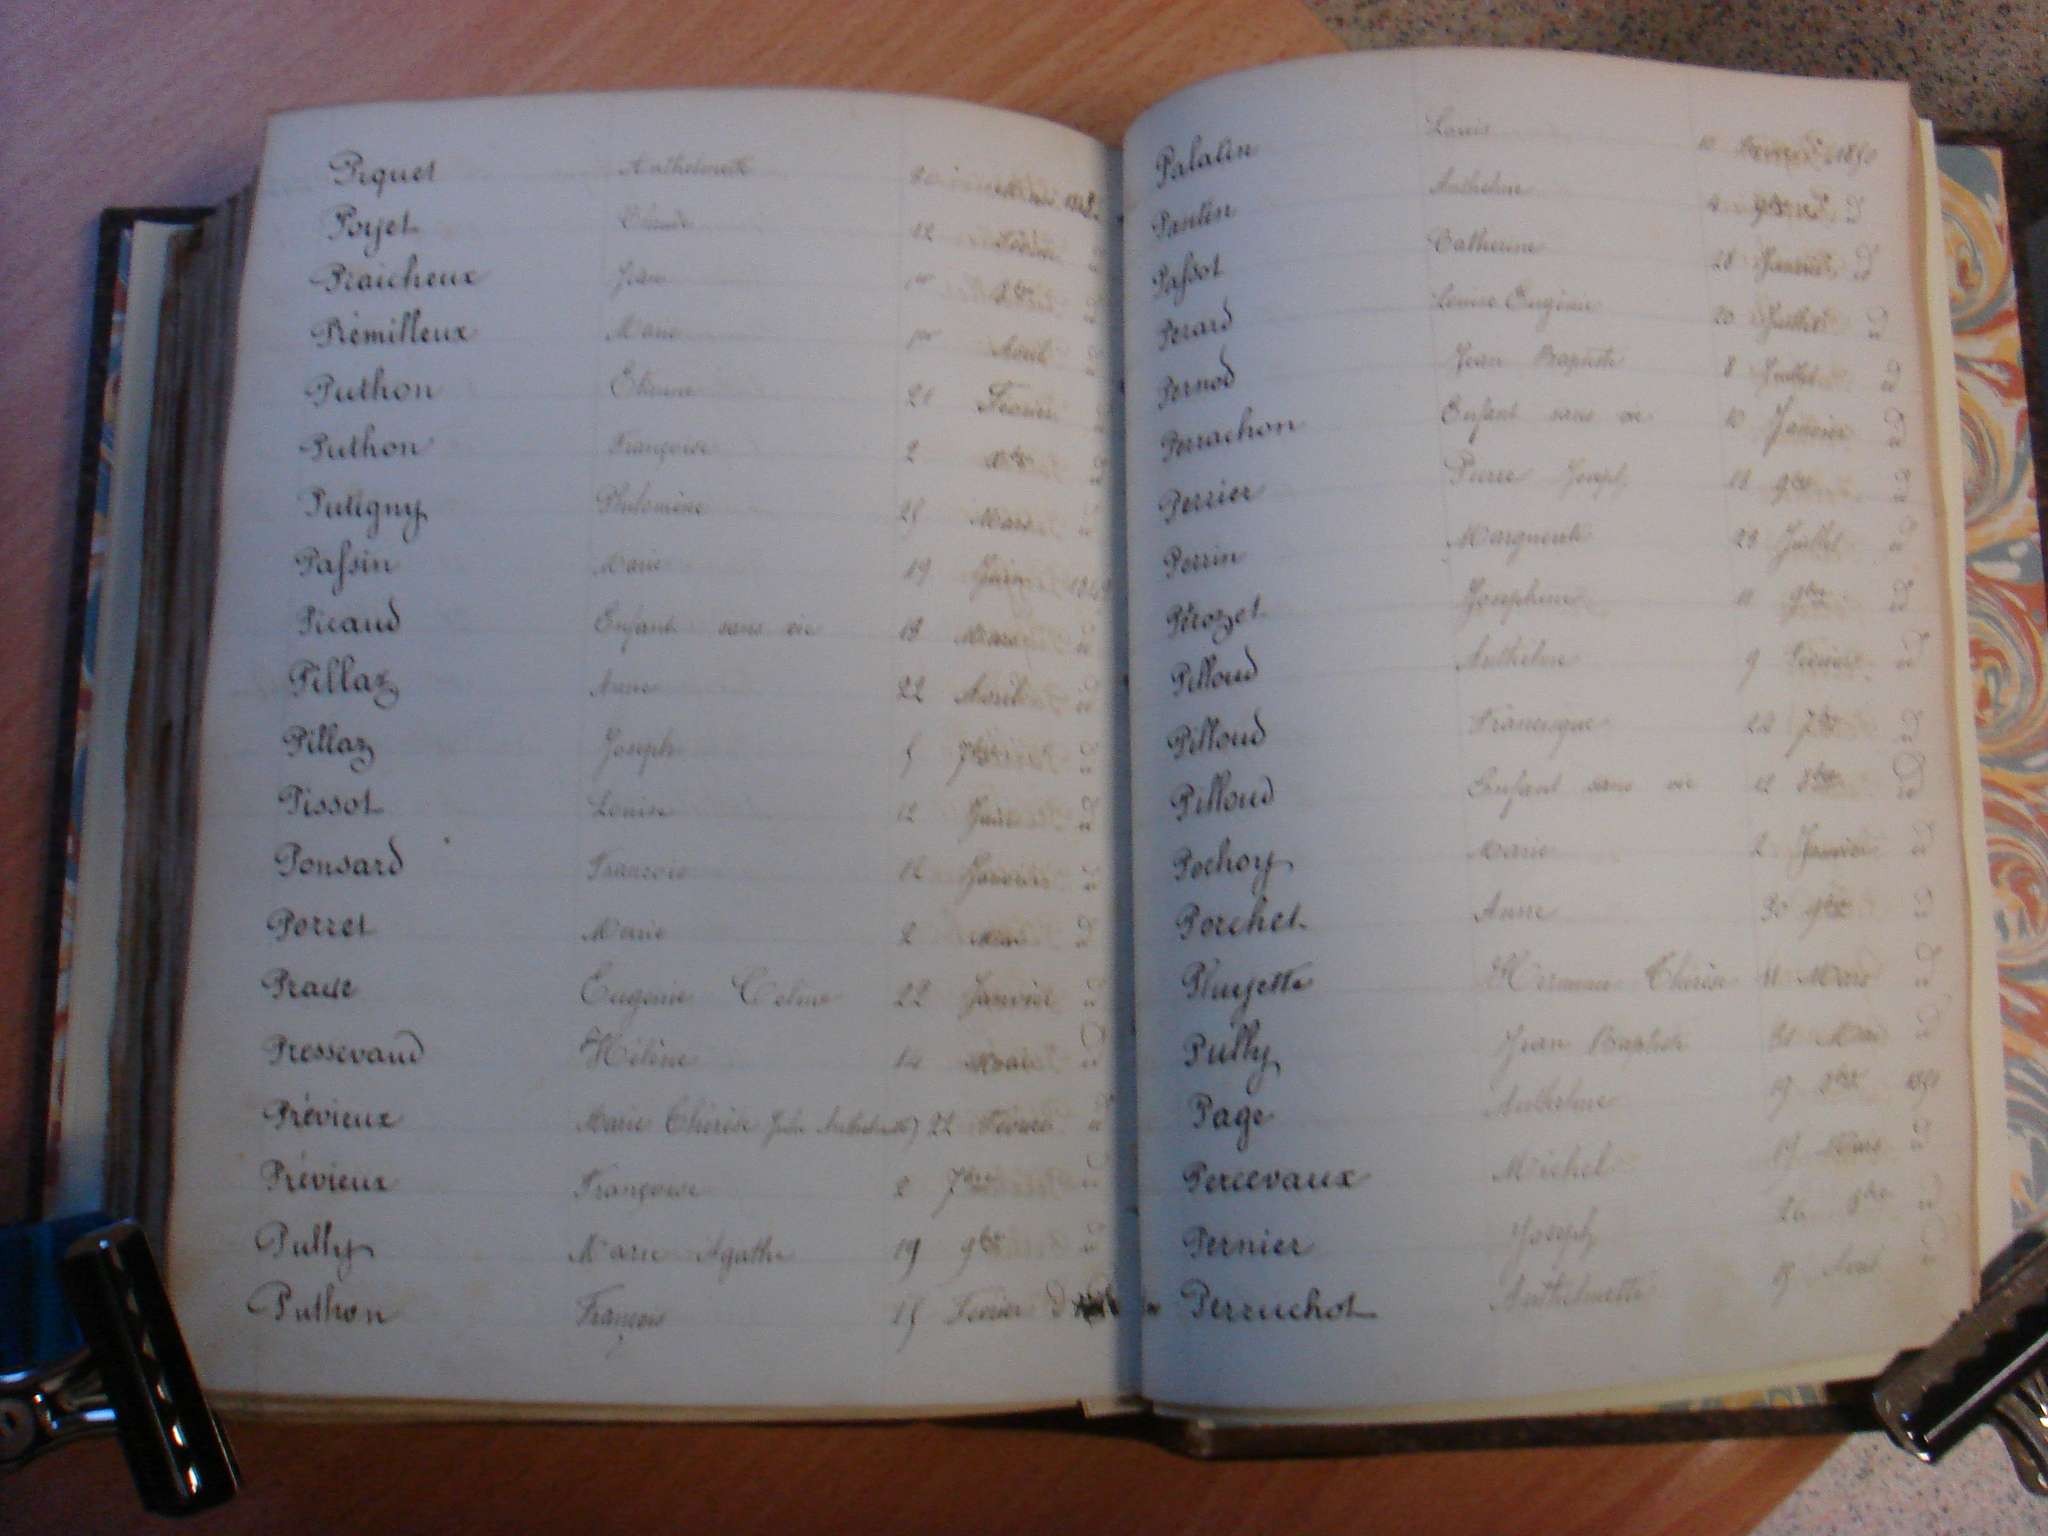 Piquet Anthelmette
Poyet Claude 12 Février
Praicheux Jean 1er 8bre
Prémilleux Marie 1er Avril
Puthon Etienne 21 Février
Puthon Françoise 2 Xbre
Putigny Philomène 25 Mars
Passin Marie 19 Juin
Picaud Enfant sans vie 18 Mars d
Pillaz Anne 22 Avril d
Pillaz Joseph 5 7bre d
Pissot Louise 12 Juin d
Ponsard François 12 Janvier d
Porret Marie 2 d
Prade Eugenie Celine 22 Janvier d
Pressevaud Hélène 14 d
Prévieux Marie Thérèse 22 Février d
Prévieux Françoise 2 7bre d
Pully Marie Agathe 19 9bre d
Puthon François 15 Février d
Palatin Louis 10 1850
Pantin Anthelme 4 9bre d
Passot Catherine 28 Janvier d
Perard Louise Eugénie 20 Juillet d
Pernod Jean Baptiste 8 Juillet d
Perrachon Enfant sans vie 10 Janvier d
Perrier Pierre Joseph 13 9bre d
Perrin Marguerite 23 Juillet d
Pérozet Josephine 11 9bre d
Pilloud Anthelme 9 Février d
Pilloud Francisque 22 7bre d
Pilloud Enfant sans vie 12 8bre d
Pochoy Marie 2 Janvier d
Porchet Anne 30 9bre d
Pluyette Hermance Thérèse 11 Mars d
Pully Jean Baptiste 31 d
Page Anthelme 19 1851
Percevaux Michel 19 Mars d
Pernier Joseph 26 8bre d
Perruchot Anthelmette 19 Avril d